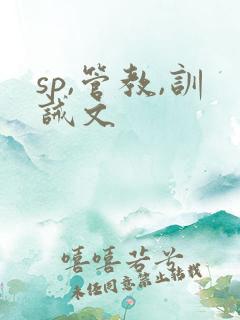 sp,管教,訓
誡文
嘻嘻若兮
未任同意禁止转载